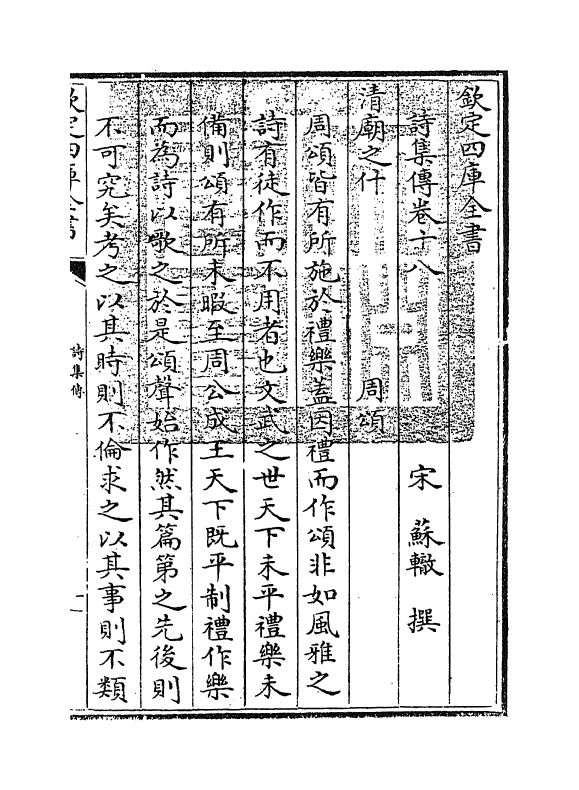 欽定四庫全書
詩集傳卷十八
宋 蘇轍 撰
清廟之什 周頌
周頌皆有所施於禮樂蓋因禮而作頌非如風雅之
詩有徒作而不用者也文武之世天下未平禮樂未
備則頌有所未暇至周公成王天下既平制禮作樂
而為詩以歌之於是頌聲始作然其篇第之先後則
不可究矣考之以其時則不倫求之以其事則不類
欽定四庫全書
詩集傳
一